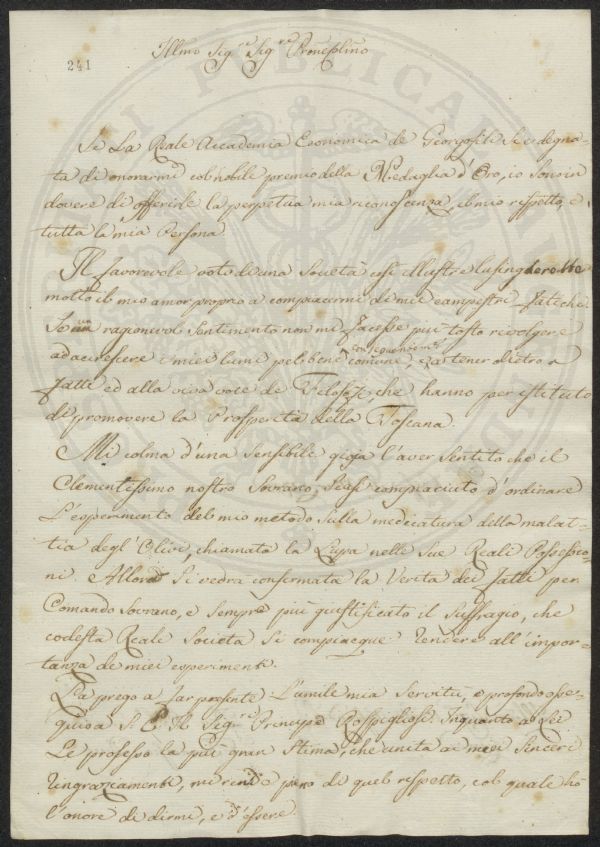 Illmo Sig.re Sig.re Pron Col.mo
241
Se La Reale Accademia Economica de Georgofili si è degna-
ta di onorarmi col nobile premio della Medaglia d'Oro, io Sono in
dovere di offerirle la perpetua mia riconoscenza, il mio rispetto, e
tutta la mia Persona
Il favorevole voto di una Società così illustre lusingherebbe
molto il mio amor proprio a compiacermi di miei campestri fatiche
Se un ragionevol Sentimento non mi facesse più tosto rivolgere
ad accrescere i miei lumi pel bene comune, e a tener dietro a
fatti ed alla viva voce de Filosofi, che hanno per istituto
di promovere la Prosperità della Toscana.
Mi colma d'una Sensibile gioja l'aver Sentito che il
Clementissimo nostro Sovrano, Siasi compiaciuto d'ordinare
L'esperimento del mio metodo Sulla medicatura della malat-
tia degl'Olivi, chiamata la Lupa nelle Sue Reali Possessio-
ni. e Allora Si vedrà confermata la Verità dei fatti per
Comando Sovrano, e Sempre più giustificato il Suffragio, che
codesta Reale Società Si compiacque rendere all'impor-
tanza de miei esperimenti.
La prego a far presente L'umile mia Servitù, e profondo osse-
quio a S. E. Il Sig.re Principe Rospigliosi. Inquanto a Lei
Le professo la più gran Stima, che unita ai miei Sinceri
ringraziamenti, mi rende pieno di quel rispetto, col quale hò
l'onore di dirmi, e d'essere